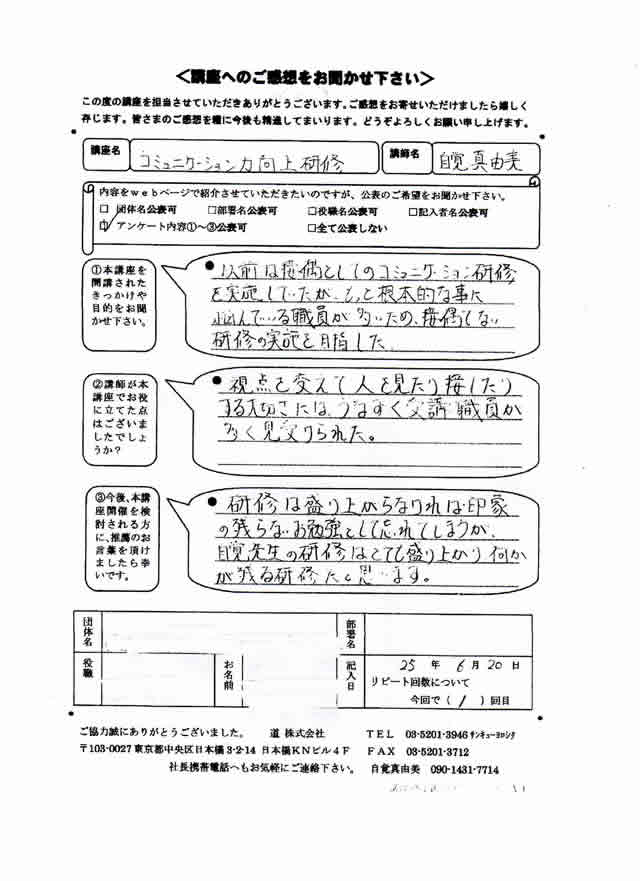 ＜講座へのご感想をお聞かせ下さい＞
この度の講座を担当させていただきありがとうございます。ご感想をお寄せいただけましたら嬉しく
存じます。皆さまのご感想を糧に今後も精進してまいります。どうぞよろしくお願い申し上げます。
講座名 コミュニケーション力向上研修 講師名 自覚真由美
内容をｗｅｂページで紹介させていただきたいのですが、公表のご希望をお聞かせ下さい。
□ 団体名公表可 □部署名公表可 □役職名公表可 □記入者名公表可
□ アンケート内容①～③公表可 □全て公表しない
①本講座を
開講された
きっかけや
目的をお聞
かせ下さい。
●以前は接偶としてのコミュニケーション研修
を実施していたが、もっと根本的な事に
悩んでいる職員が多いため、接偶しない
研修の実施を目指した。
②講師が本
講座でお役
に立てた点
はございま
したでしょ
うか？
●視点を変えて人を見たり接したり
する大切さには、うなずく受講職員が
多く見受けられた。
③今後、本講
座開催を検
討される方
に、推薦のお
言葉を頂け
ましたら幸
いです。
●研修は盛り上がらなければ印象
の残らないお勉強として忘れてしまうが、
自覚先生の研修はとても盛り上がり何か
が残る研修だと思います。
団体名 部署名
役職 お名前 記入日 25 年 6 月 20 日
リピート回数について
今回で（ 1 ）回目
ご協力誠にありがとうございました。 道 株式会社 ＴＥＬ 03-5201-3946 サンキューヨロシク
〒103-0027 東京都中央区日本橋3-2-14 日本橋ＫＮビル４Ｆ ＦＡＸ 03-5201-3712
社長携帯電話へもお気軽にご連絡下さい。 自覚真由美 090-1431-7714